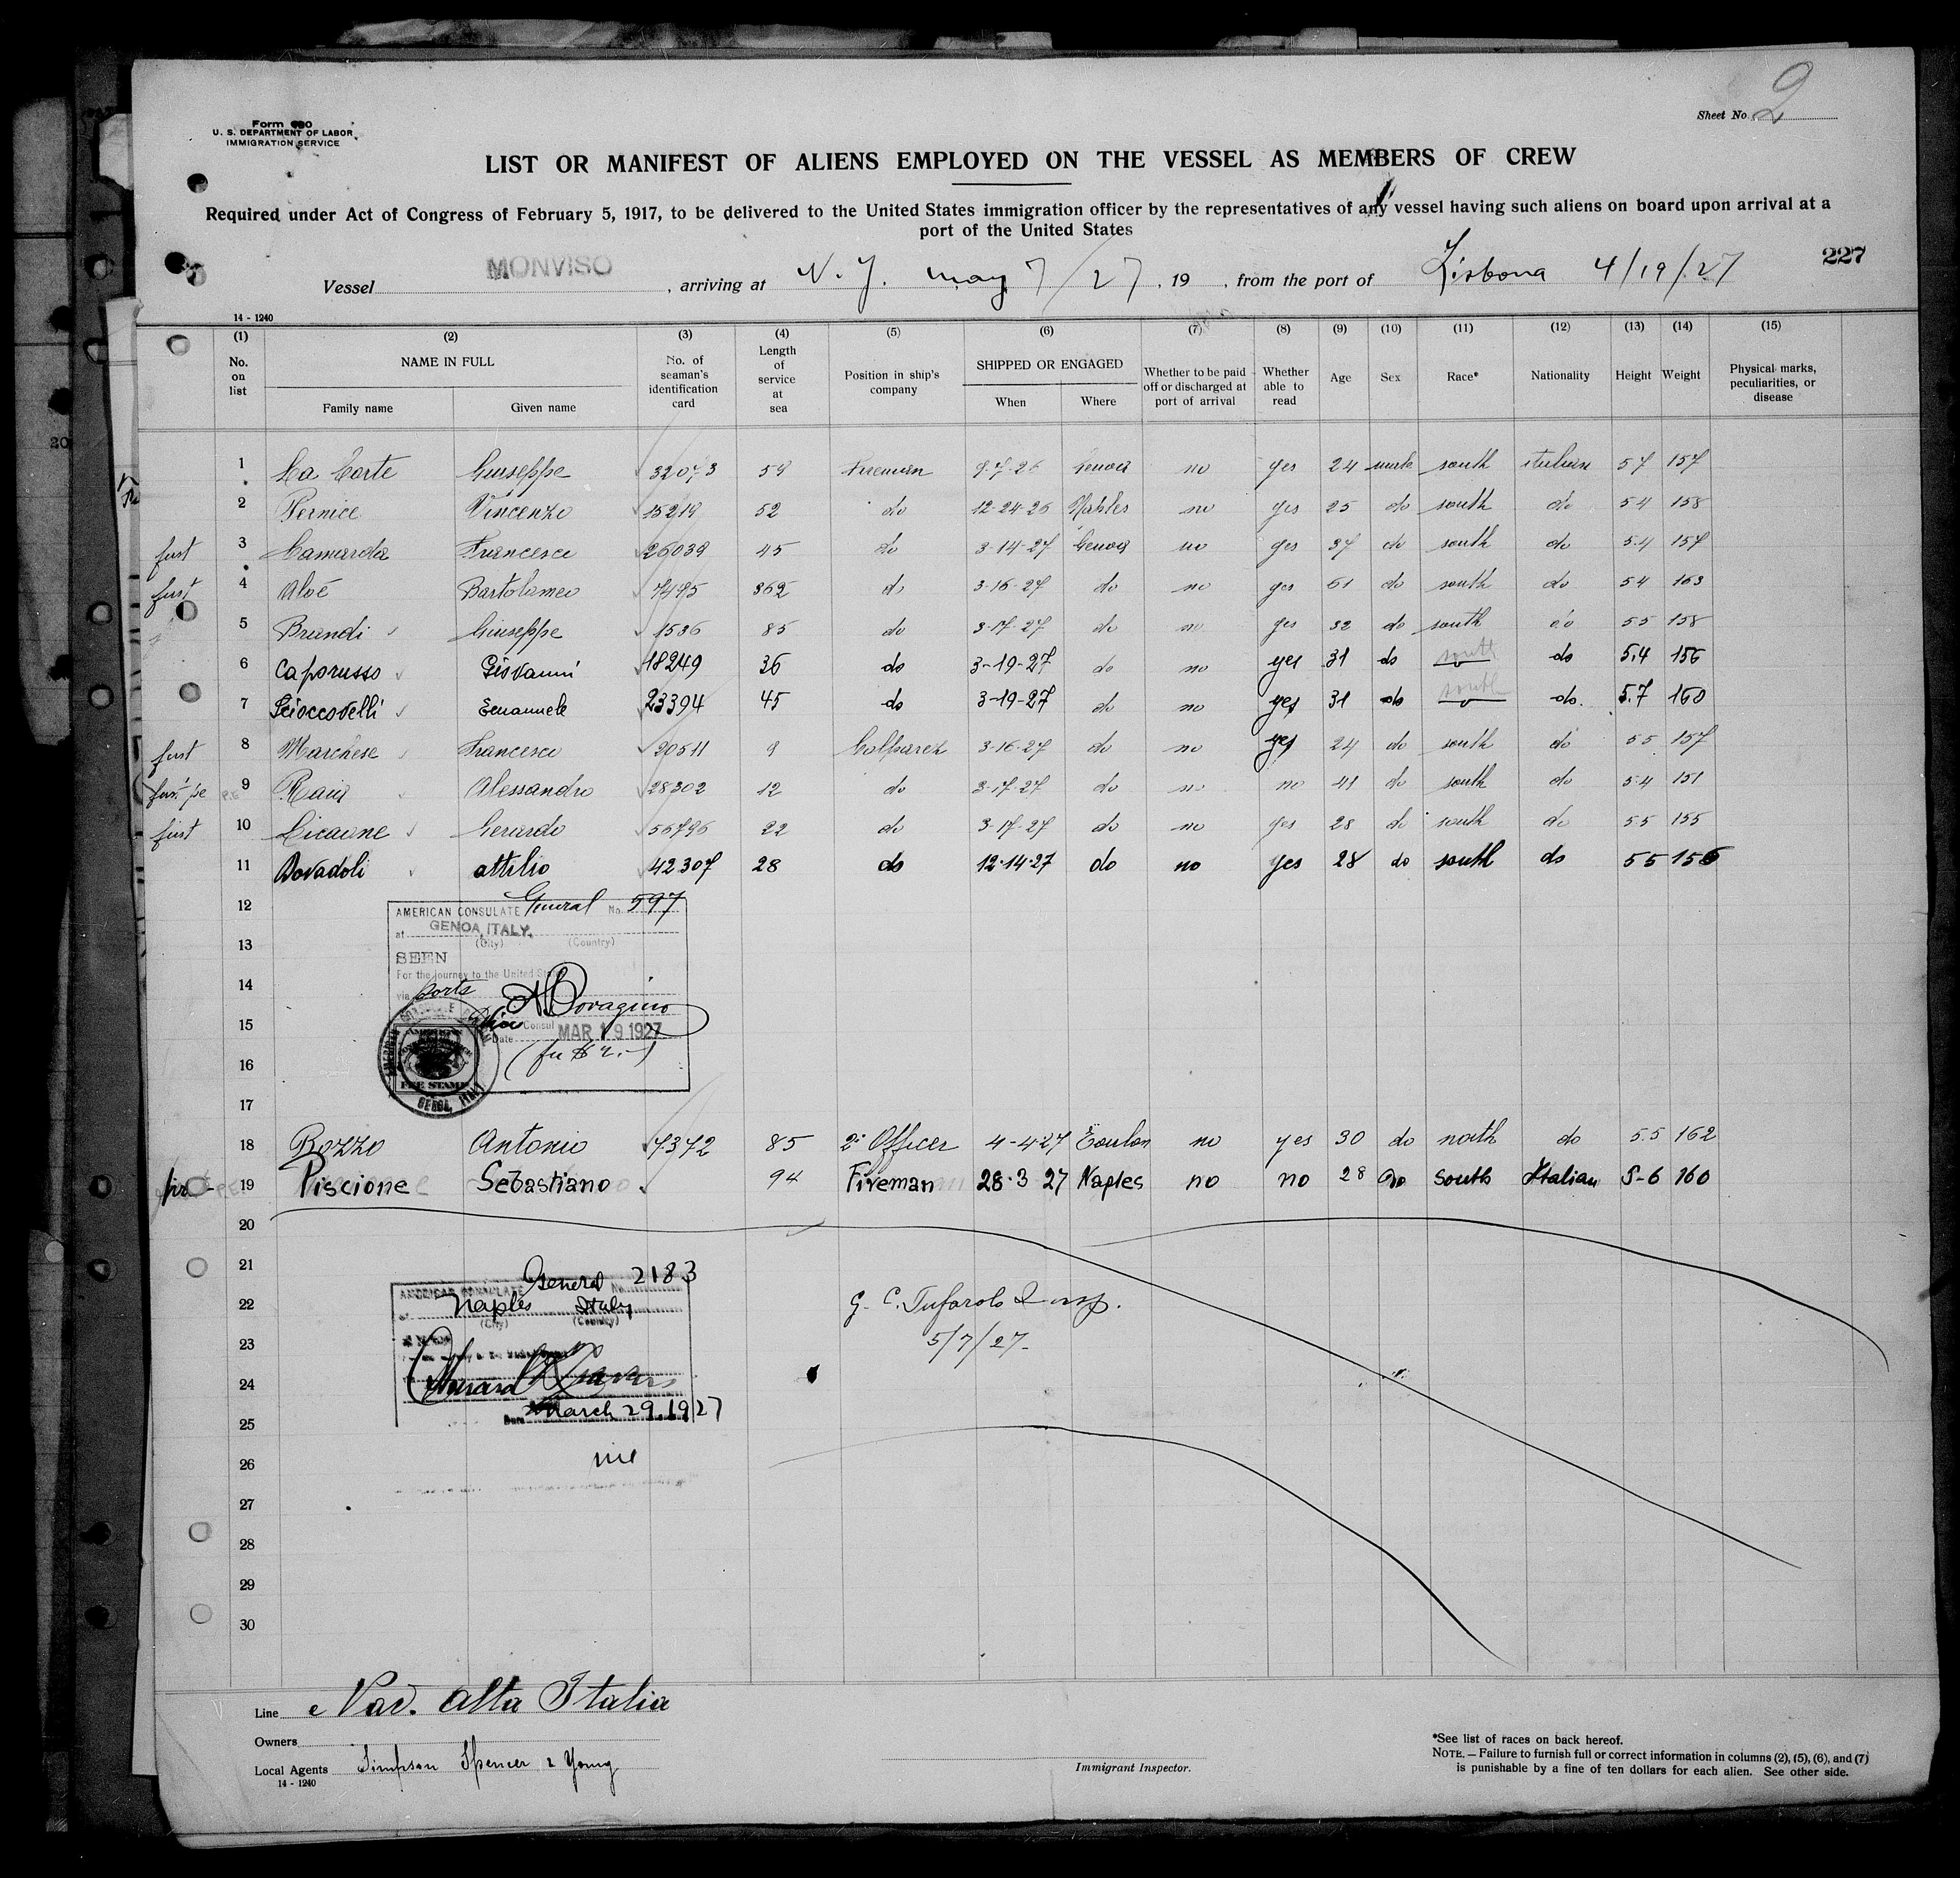 Sheet No. 2
Form 680
U. S. DEPARTMENT OF LABOR
IMMIGRATION SERVICE
LIST OR MANIFEST OF ALIENS EMPLOYED ON THE VESSEL AS MEMBERS OF CREW
Required under Act of Congress of February 5, 1917, to be delivered to the United States immigration officer by the representatives of any vessel having such aliens on board upon arrival at a
port of the United States
227
Vessel MONVISO, arriving at N.Y. May 7/27, 19 , from the port of Lisbona 4/19/27
14 - 1240
(1) (2) (3) (4) (5) (6) (7) (8) (9) (10) (11) (12) (13) (14) (15)
No. on list NAME IN FULL Family name Given name No. of seaman's identification card Length of service at sea Position in ship's company SHIPPED OR ENGAGED When Where Whether to be paid off or discharged at port of arrival Whether able to read Age Sex Race* Nationality Height Weight Physical marks, peculiarities, or disease
1 La Corte Giuseppe 32073 59 Fireman 9-7-26 Genoa no yes 24 male south italian 57 157
2 Pernice Vincenzo 15219 52 do 12-24-26 Naples no yes 25 do south do 54 158
first 3 Camarda Francesco 26039 45 do 3-14-27 Genoa no yes 37 do south do 5.4 157
first 4 Aloé Bartolomeo 7495 362 do 3-16-27 do no yes 61 do south do 54 163
5 Brandi Giuseppe 1536 85 do 3-17-27 do no yes 32 do south do 55 158
6 Caporusso Giovanni 18249 36 do 3-19-27 do no yes 31 do south do 5.4 156
7 Scioccovelli Emanuele 23394 45 do 3-19-27 do no yes 31 do south do. 5.7 160
first 8 Marchese Francesco 20511 9 Colparer 3-16-27 do no yes 24 do south do 55 157
P.E 9 Alessandro 28302 12 do 3-17-27 do no no 41 do south do 54 151
first 10 Licaune Gerardo 56796 22 do 3-17-27 do no yes 28 do south do 55 155
11 Dovadoli attilio 42307 28 do 12-14-27 do no yes 28 do south do 55 156
12
AMERICAN CONSULATE General No. 597
at GENOA, ITALY.
(City) (Country)
13
SEEN
For the journey to the United States
14
via ports
15
Vice Consul
Date MAR 19 1927
16
FEE STAMP
GENOA, ITALY
17
18 Bozzo Antonio 7372 85 2° Officer 4-4-27 Toulon no yes 30 do north do 5.5 162
19 Piscione Sebastiano 94 Fireman 28-3 27 Naples no no 28 do South Italian 5-6 160
20
21
General No. 2183
AMERICAN CONSULATE
22
Naples Italy
(City) (Country)
G. C. Tufarolo Insp.
23
5/7/27
24
Date March 29, 1927
25
26
27
28
29
30
Line Nav. Alta Italia
Owners
Local Agents Simpson Spencer & Young
14 - 1240
Immigrant Inspector.
*See list of races on back hereof.
NOTE.—Failure to furnish full or correct information in columns (2), (5), (6), and (7)
is punishable by a fine of ten dollars for each alien. See other side.